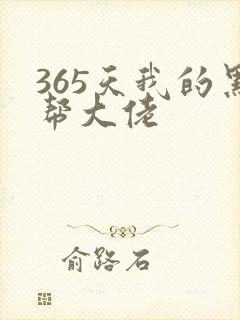 365天我的黑
帮大佬
俞路石